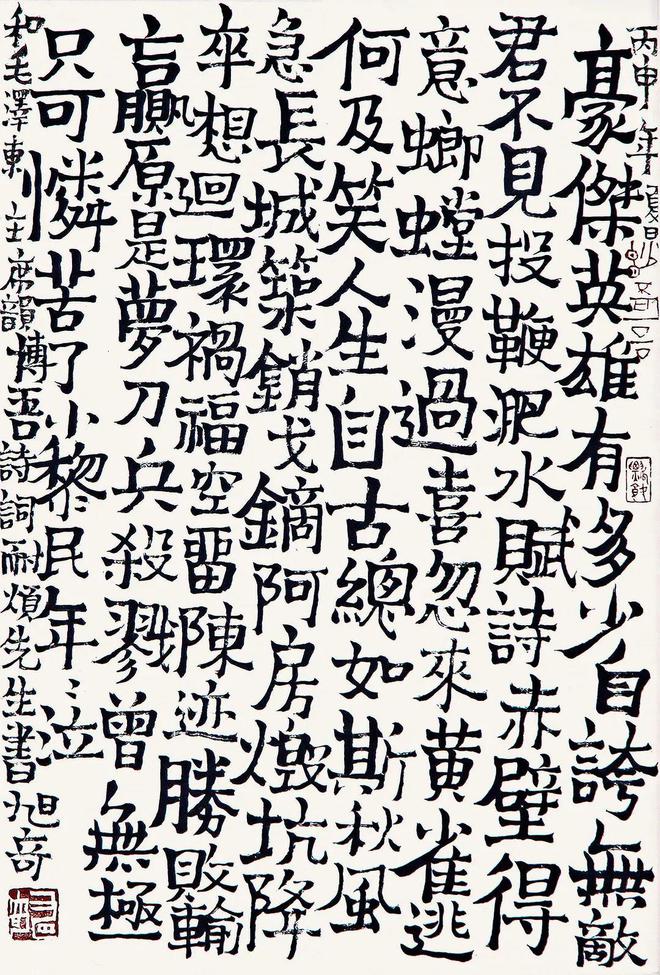 丙申年夏日
豪傑英雄有多少自誇無敵
君不見投鞭淝水賦詩赤壁得
意螂螳漫過喜忽來黃雀逃
何及笑人生自古總如斯秋風
急長城築銷戈鏑阿房燬坑降
卒想迴環禍福空畱陳迹勝敗輸
贏原是夢刀兵殺戮曾無極
只可憐苦了小黎民年〻泣
和毛澤東主席韻博吾詩詞耐煩先生書旭奇